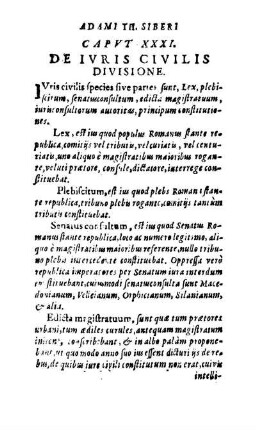 ADAMI TH. SIBERI
CAPVT XXXI.
DE IVRIS CIVILIS
DIVISIONE.
IVris civilis species sive partes sunt, Lex, plebi-
scitum, senatusconsultum, edicta magistratuum,
iurisconsultorum autoritas, principum constitutio-
nes.
Lex, est ius quod populus Romanus stante re-
publica, comitijs vel tributis, vel curiatis, vel centu-
riatis, uno aliquo è magistratibus maioribus rogan-
te, veluti prætore, consule, dictatore, interrege con-
stituebat.
Plebiscitum, est ius quod plebs Romana stan-
te republica, tribuno plebis rogante, comitijs tantùm
tributis constituebat.
Senatus consultum, est ius quod Senatus Ro-
manus stante republica, loco ac numero legitimo, ali-
quo è magistratibus maioribus referente, nullo tribu-
no plebis intercedente constituebat. Oppressa verò
republica imperatores per Senatum iura interdum
constituebant, cuiusmodi senatusconsulta sunt Mace-
donianum, Velleianum, Orphicianum, Silanianum,
& alia.
Edicta magistratuum, sunt quæ tum prætores
urbani, tum ædiles curules, antequam magistratum
inirent, conscribebant, & in albo palàm propone-
bant, ut quo modo anno suo ius essent dicturi ijs de re-
bus, de quibus iure civili constitutum non erat, cuivis
intelli-